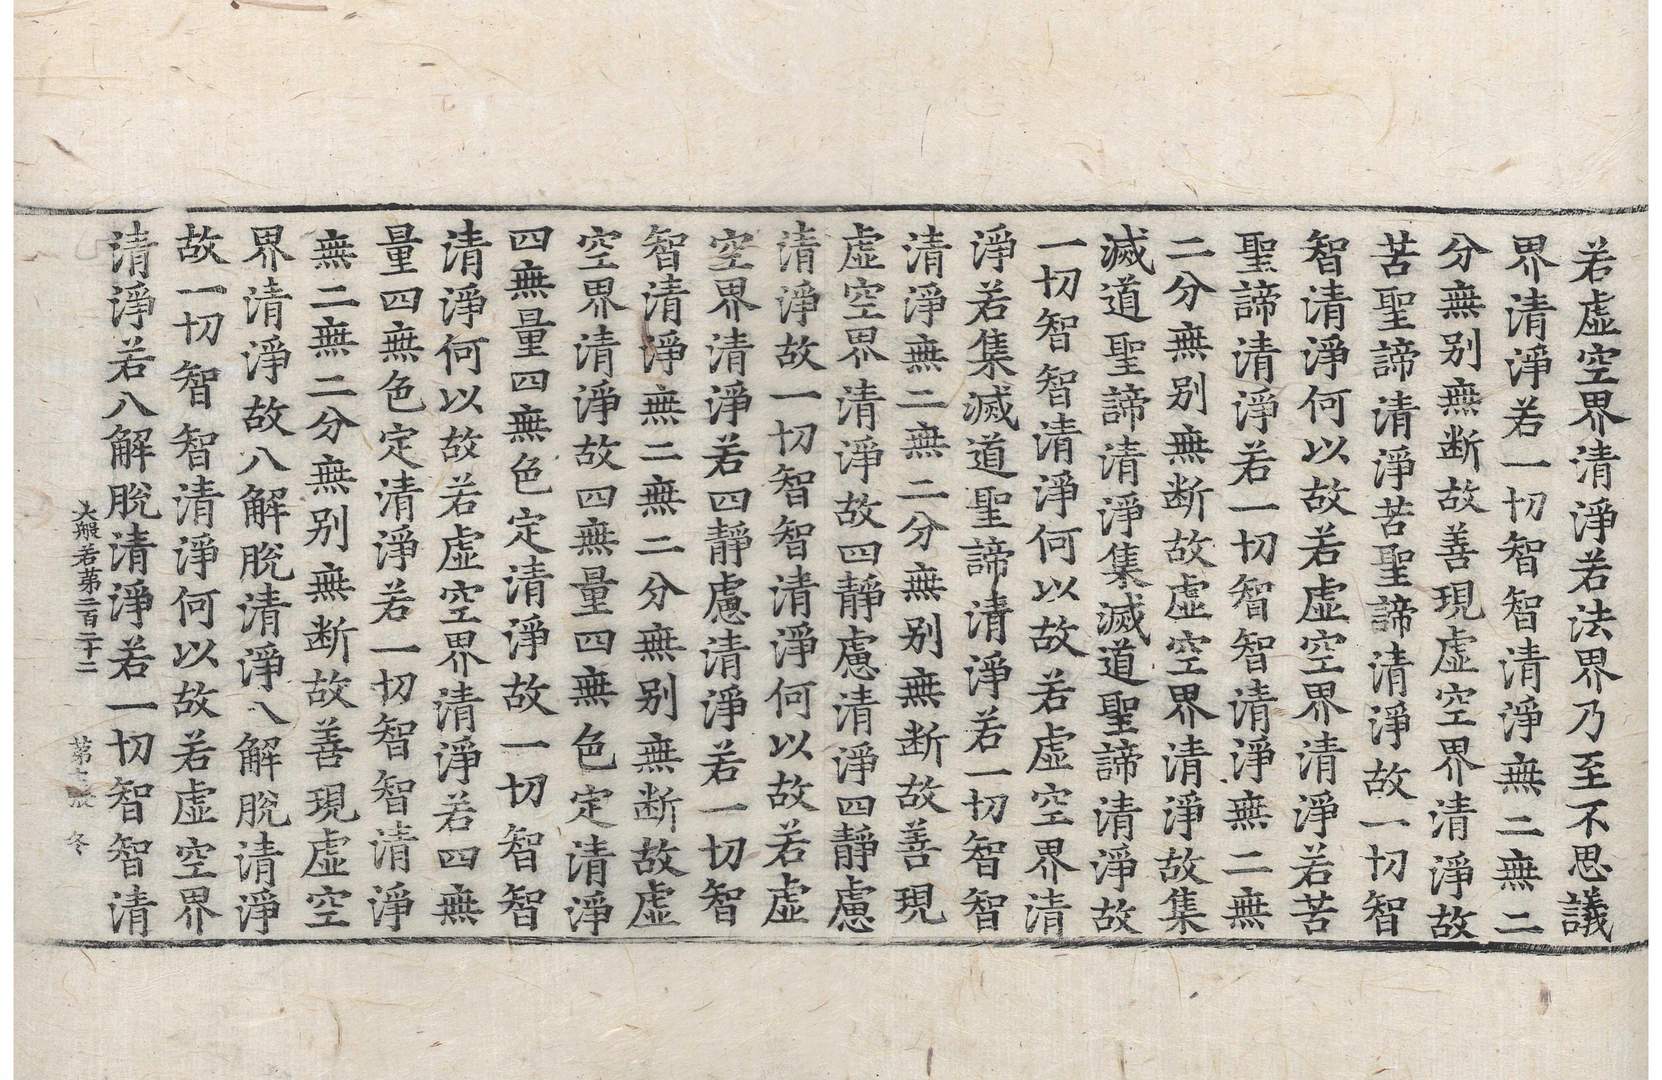 若虛空界清淨若法界乃至不思議
界清淨若一切智智清淨無二無二
分無别無断故善現虛空界清淨故
苦聖諦清淨苦聖諦清淨故一切智
智清淨何以故若虛空界清淨若苦
聖諦清淨若一切智智清淨無二無
二分無别無断故虛空界清淨故集
滅道聖諦清淨集滅道聖諦清淨故
一切智智清淨何以故若虛空界清
淨若集滅道聖諦清淨若一切智智
清淨無二無二分無别無断故善現
虛空界清淨故四靜慮清淨四靜慮
清淨故一切智智清淨何以故若虛
空界清淨若四靜慮清淨若一切智
智清淨無二無二分無别無断故虛
空界清淨故四無量四無色定清淨
四無量四無色定清淨故一切智智
清淨何以故若虛空界清淨若四無
量四無色定清淨若一切智智清淨
無二無二分無别無断故善現虛空
界清淨故八解脫清淨八解脫清淨
故一切智智清淨何以故若虛空界
清淨若八解脫清淨若一切智智清
大般若第二百二十二 第 冬